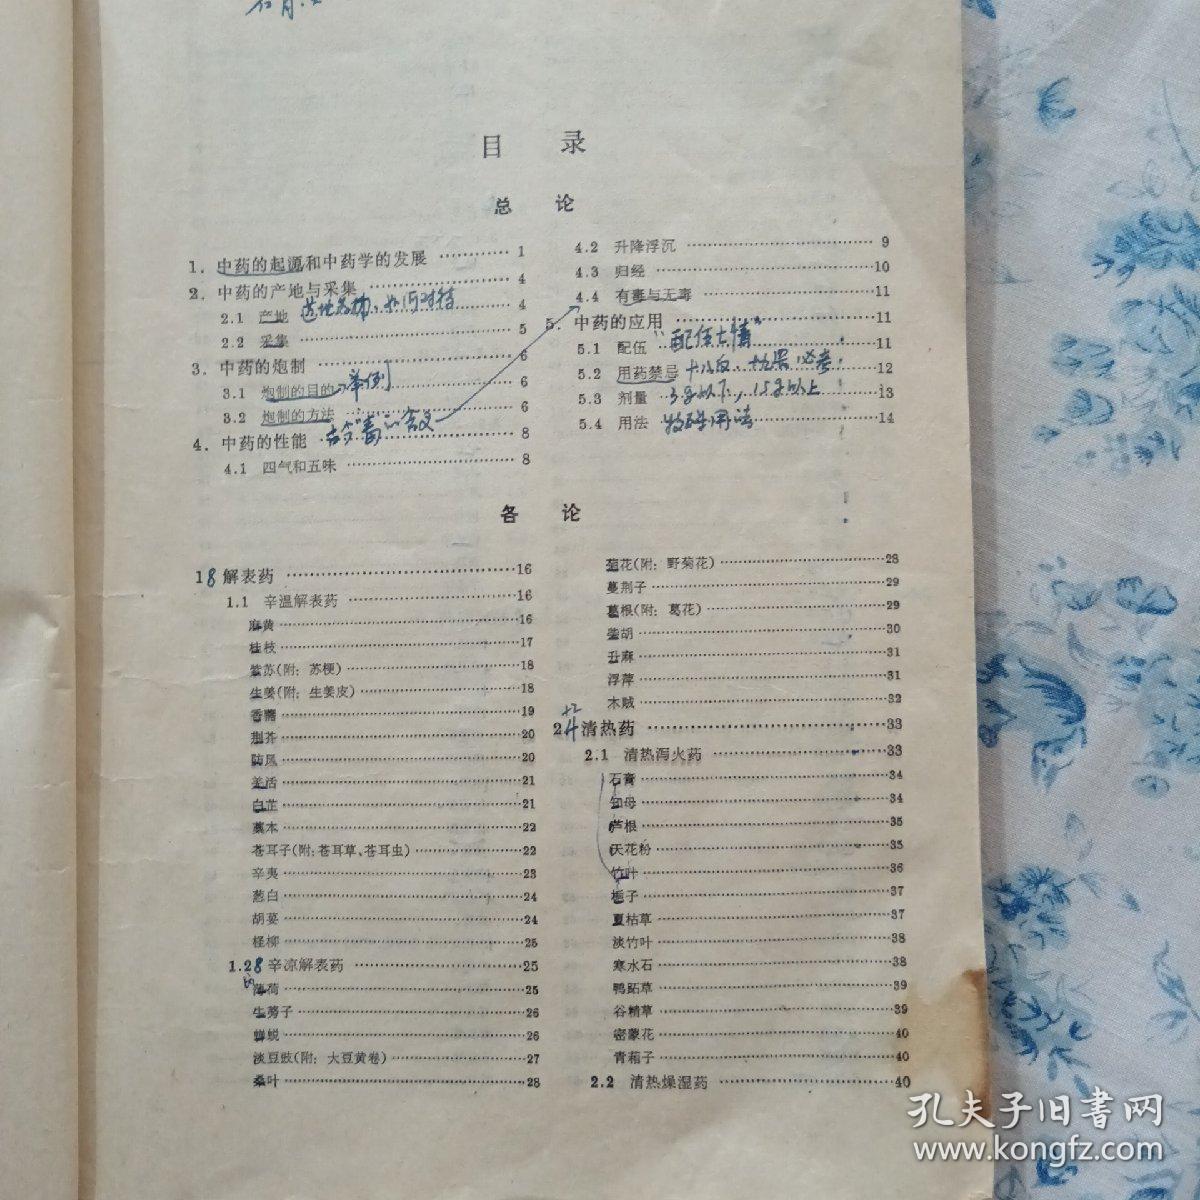 目 录
总 论
1. 中药的起源和中药学的发展 ………… 1
2. 中药的产地与采集 ………… 4
2.1 产地 ………… 4
2.2 采集 ………… 5
3. 中药的炮制 ………… 6
3.1 炮制的目的 举例 ………… 6
3.2 炮制的方法 ………… 6
4. 中药的性能 ………… 8
4.1 四气和五味 ………… 8
4.2 升降浮沉 ………… 9
4.3 归经 ………… 10
4.4 有毒与无毒 ………… 11
5. 中药的应用 ………… 11
5.1 配伍 ………… 11
5.2 用药禁忌 ………… 12
5.3 剂量 3g以下，15g以上 ………… 13
5.4 用法 特殊用法 ………… 14
各 论
1 8 解表药 ………… 16
1.1 辛温解表药 ………… 16
麻黄 ………… 16
桂枝 ………… 17
紫苏(附: 苏梗) ………… 18
生姜(附: 生姜皮) ………… 18
香薷 ………… 19
荆芥 ………… 20
防风 ………… 20
羌活 ………… 21
白芷 ………… 21
藁本 ………… 22
苍耳子(附:苍耳草、苍耳虫) ………… 22
辛夷 ………… 23
葱白 ………… 24
胡荽 ………… 24
柽柳 ………… 25
1.2 8 辛凉解表药 ………… 25
薄荷 ………… 25
牛蒡子 ………… 26
蝉蜕 ………… 26
淡豆豉(附: 大豆黄卷) ………… 27
桑叶 ………… 28
菊花(附: 野菊花) ………… 28
蔓荆子 ………… 29
葛根(附: 葛花) ………… 29
柴胡 ………… 30
升麻 ………… 31
浮萍 ………… 31
木贼 ………… 32
2 清热药 ………… 33
2.1 清热泻火药 ………… 33
石膏 ………… 34
知母 ………… 34
芦根 ………… 35
天花粉 ………… 35
竹叶 ………… 36
栀子 ………… 37
夏枯草 ………… 37
淡竹叶 ………… 38
寒水石 ………… 38
鸭跖草 ………… 39
谷精草 ………… 39
密蒙花 ………… 40
青葙子 ………… 40
2.2 清热燥湿药 ………… 40
孔夫子旧书网
www.kongfz.com